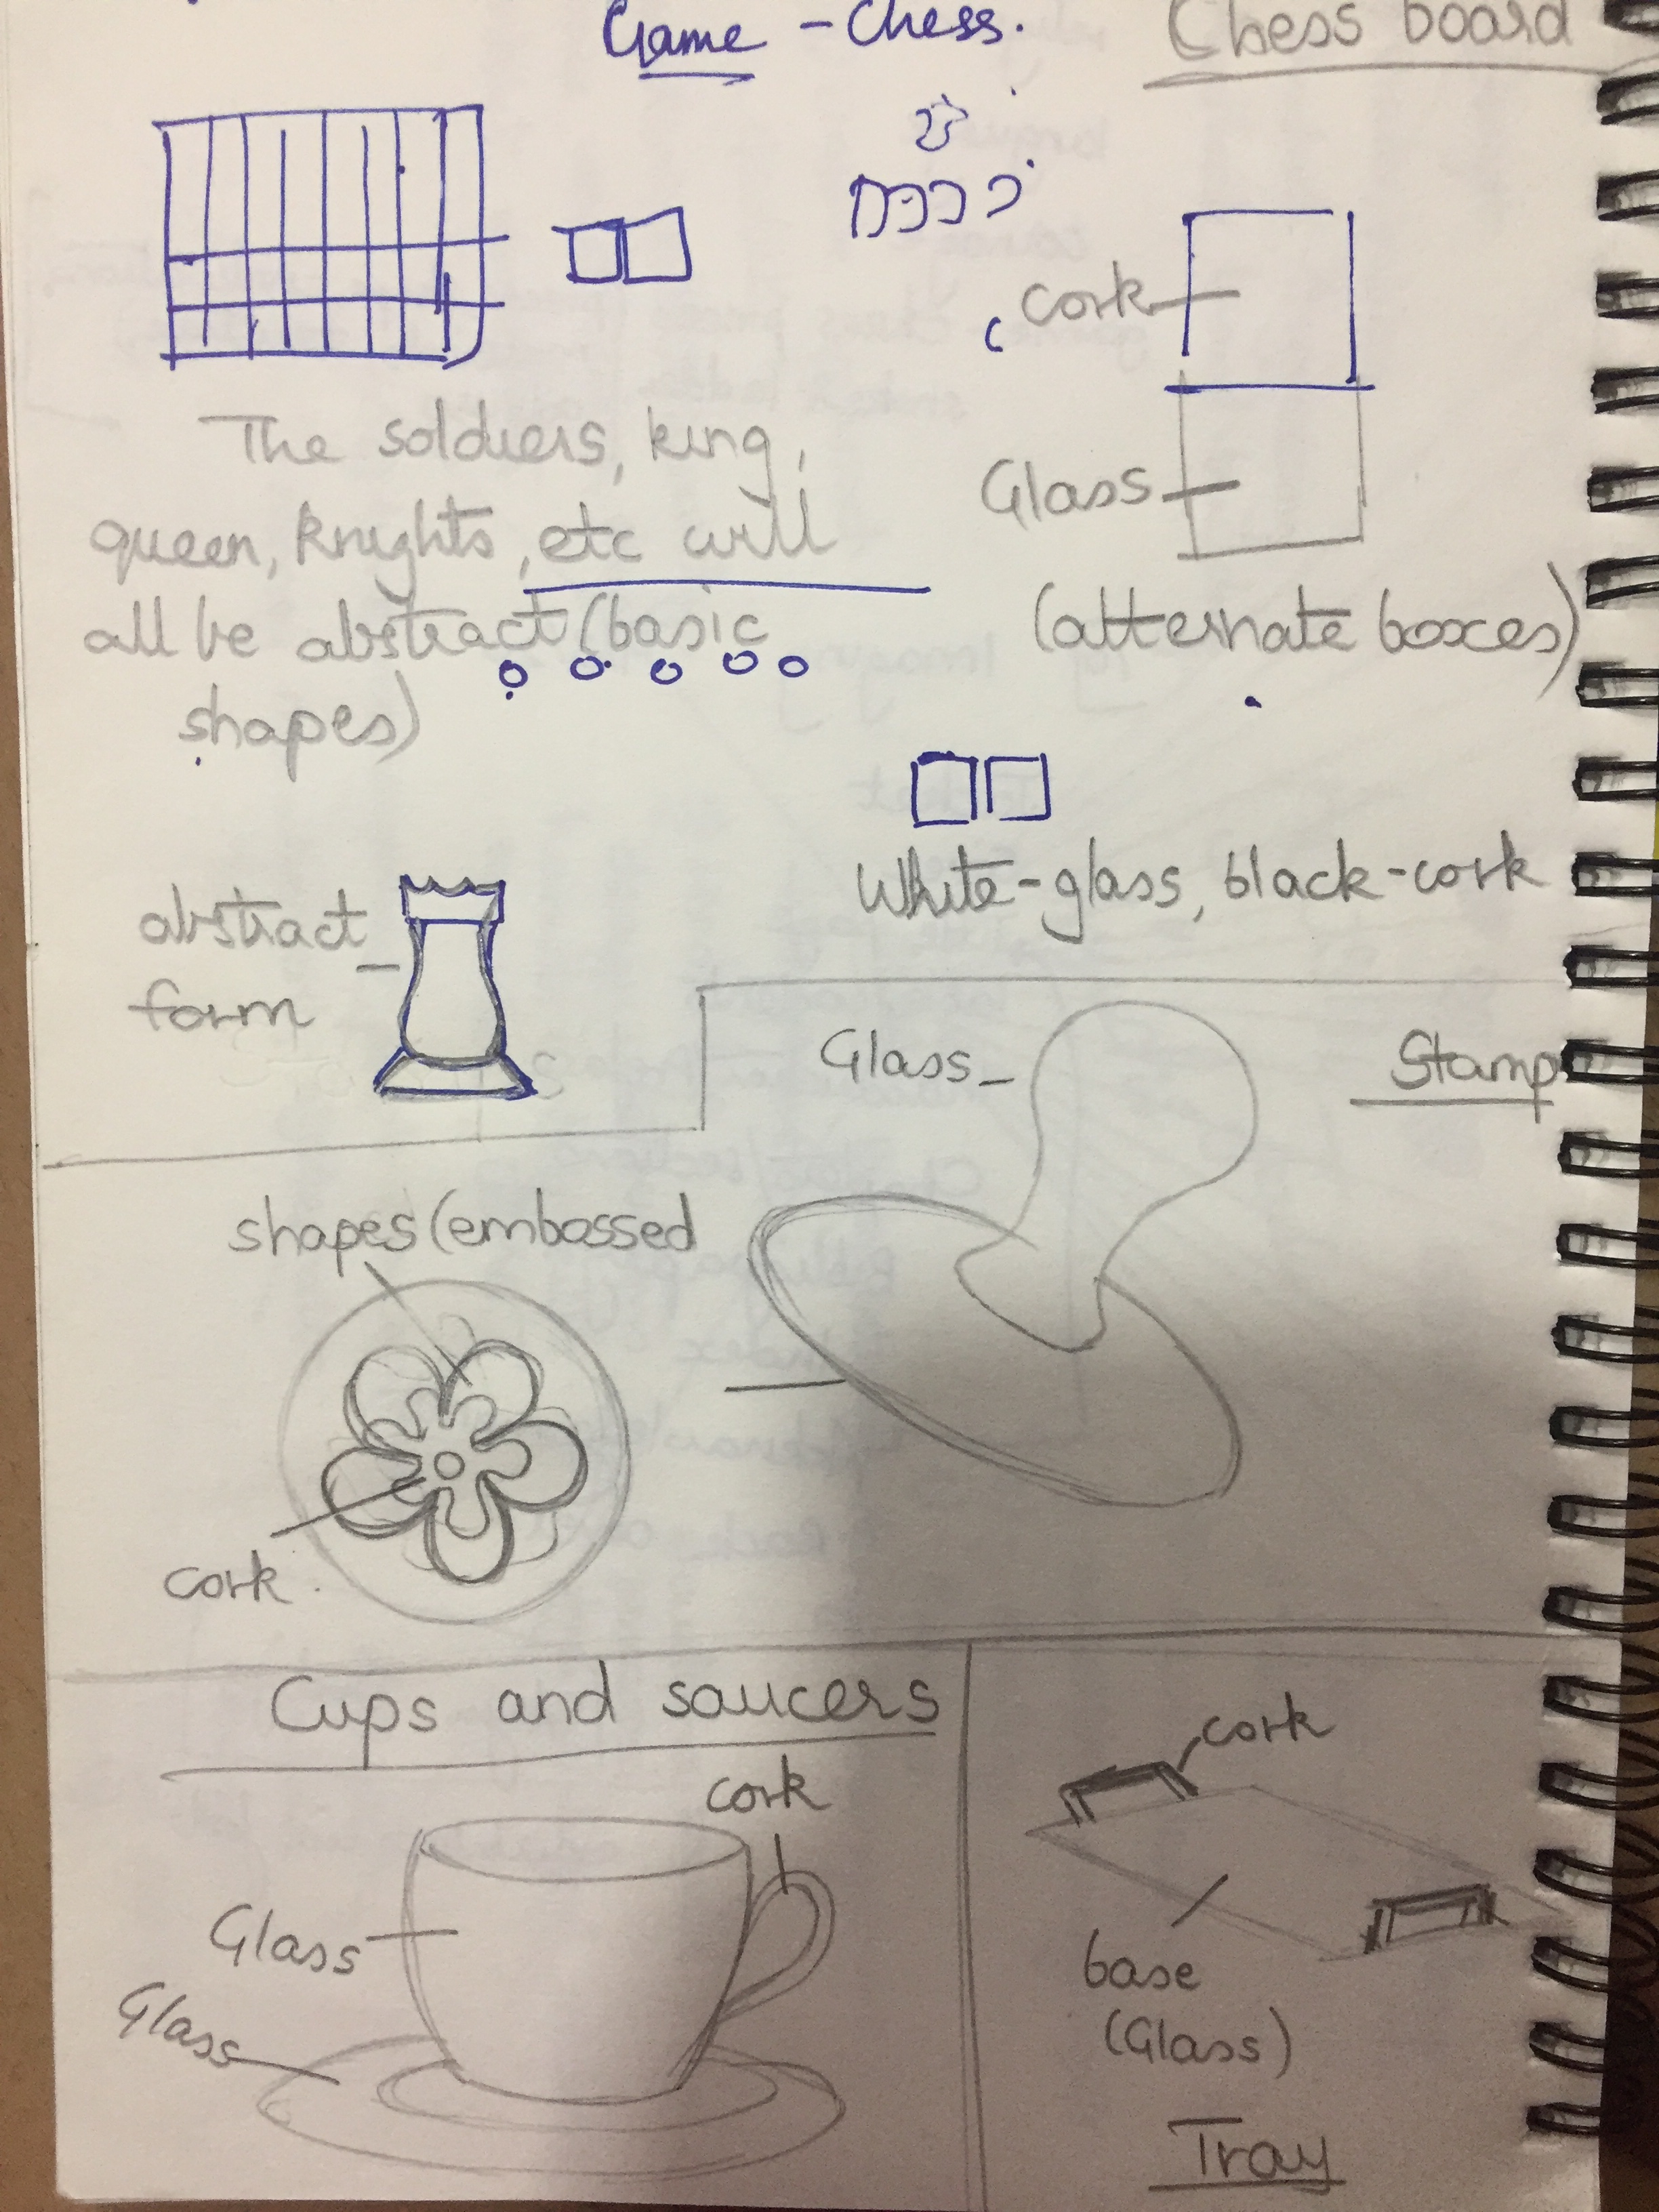 Game - Chess.
Chess board
cork
The soldiers, king,
queen, knights, etc will
all be abstract (basic
shapes)
Glass
(alternate boxes)
White-glass, black-cork
abstract
form
Glass
Stamp
shapes (embossed
cork
Cups and saucers
cork
Glass
Glass
cork
base
(Glass)
Tray